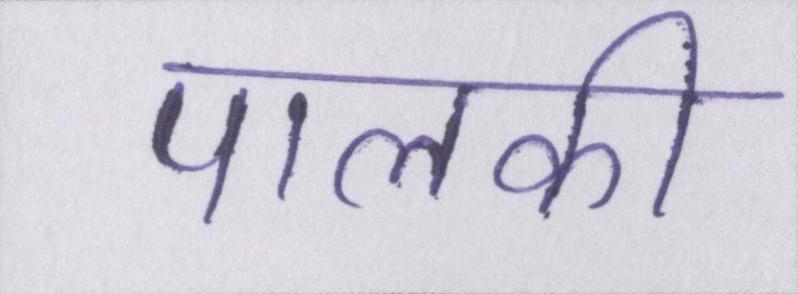 पालकी